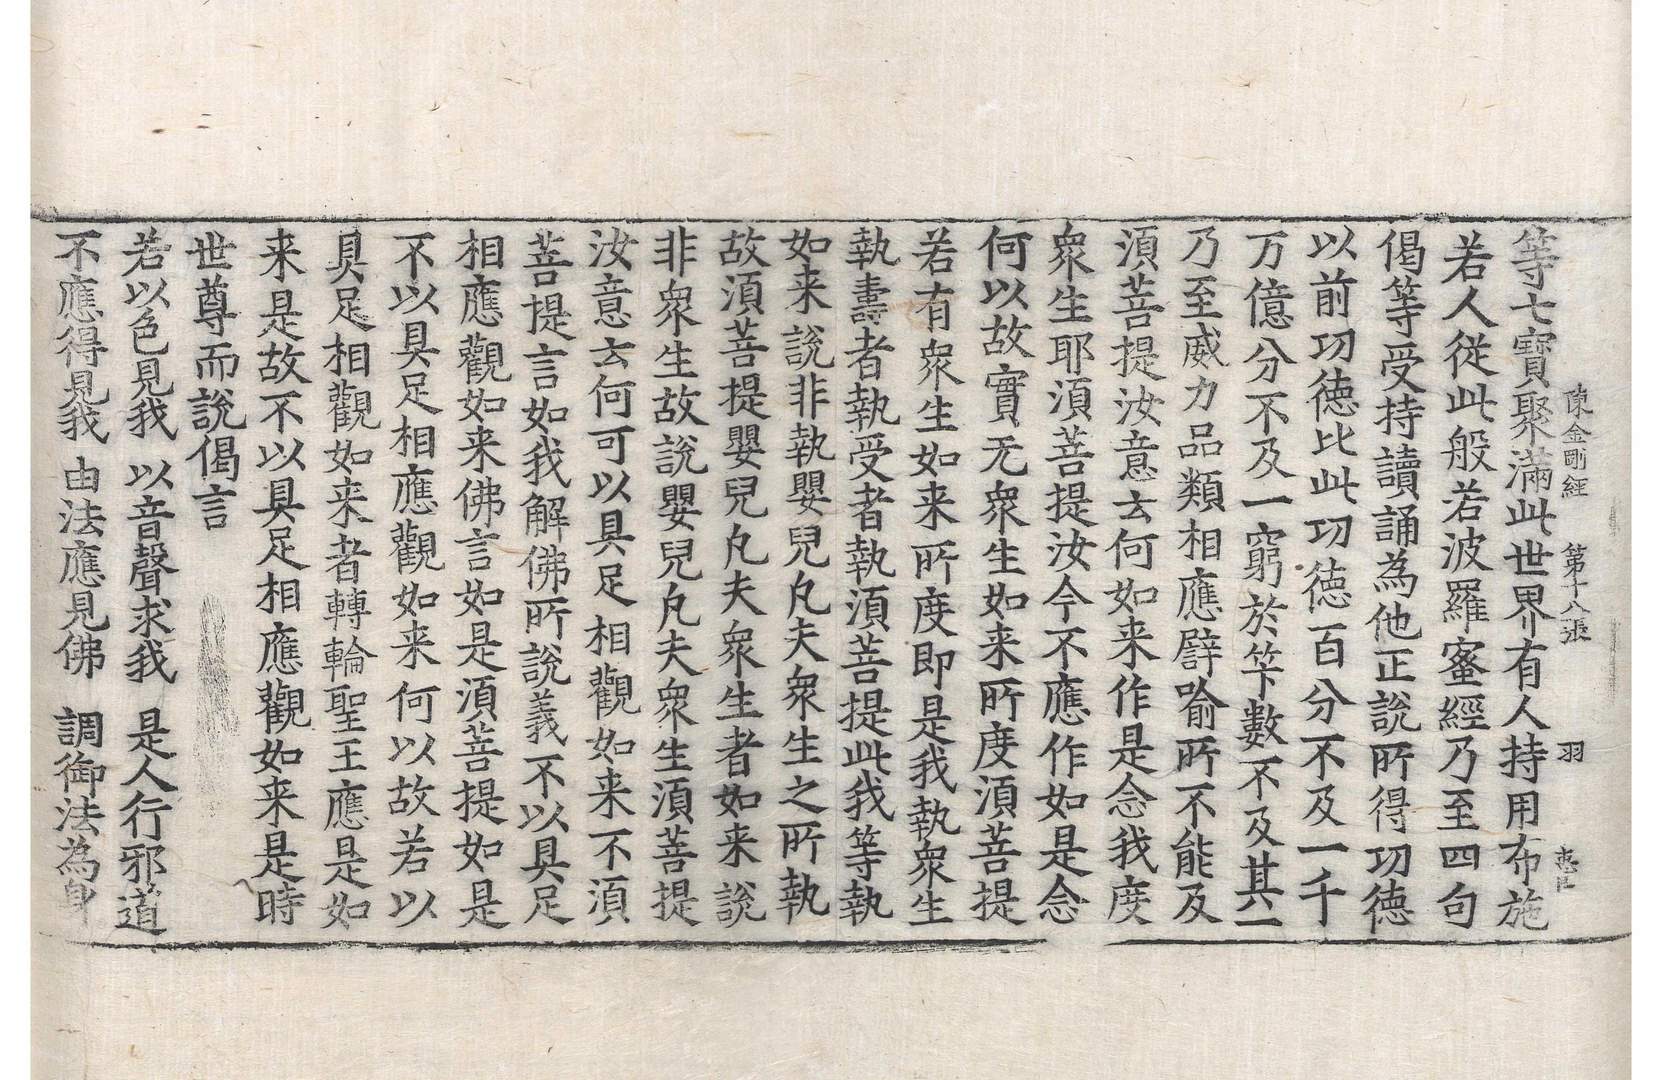 陳金剛經　第十八張　羽　惠巨
等七寶聚滿此世界有人持用布施
若人從此般若波羅蜜經乃至四句
偈等受持讀誦為他正說所得功德
以前功德比此功德百分不及一千
万億分不及一窮於竿數不及其一
乃至威力品類相應譬喻所不能及
須菩提汝意云何如来作是念我度
衆生耶須菩提汝今不應作如是念
何以故實无衆生如来所度須菩提
若有衆生如来所度即是我執衆生
執壽者執受者執須菩提此我等執
如来說非執嬰兒凡夫衆生之所執
故須菩提嬰兒凡夫衆生者如来說
非衆生故說嬰兒凡夫衆生須菩提
汝意云何可以具足相觀如来不須
菩提言如我解佛所說義不以具足
相應觀如来佛言如是須菩提如是
不以具足相應觀如来何以故若以
具足相觀如来者轉輪聖王應是如
来是故不以具足相應觀如来是時
世尊而說偈言
若以色見我　以音聲求我　是人行邪道
不應得見我　由法應見佛　調御法為身